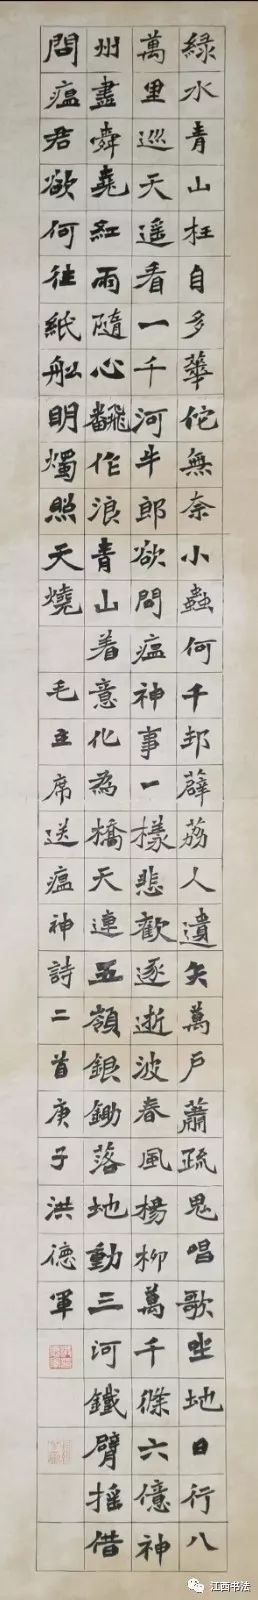 緑水青山枉自多華佗無奈小蟲何千邨薜荔人遺矢萬戶蕭疏鬼唱歌坐地日行八
萬里巡天遥看一千河牛郎欲問瘟神事一樣悲歡逐逝波春風楊柳萬千條六億神
州盡舜堯紅雨隨心飜作浪青山着意化為橋天連五嶺銀鋤落地動三河鐵臂摇借
問瘟君欲何往紙舩明燭照天燒 毛主席送瘟神詩二首庚子洪德軍
江西书法